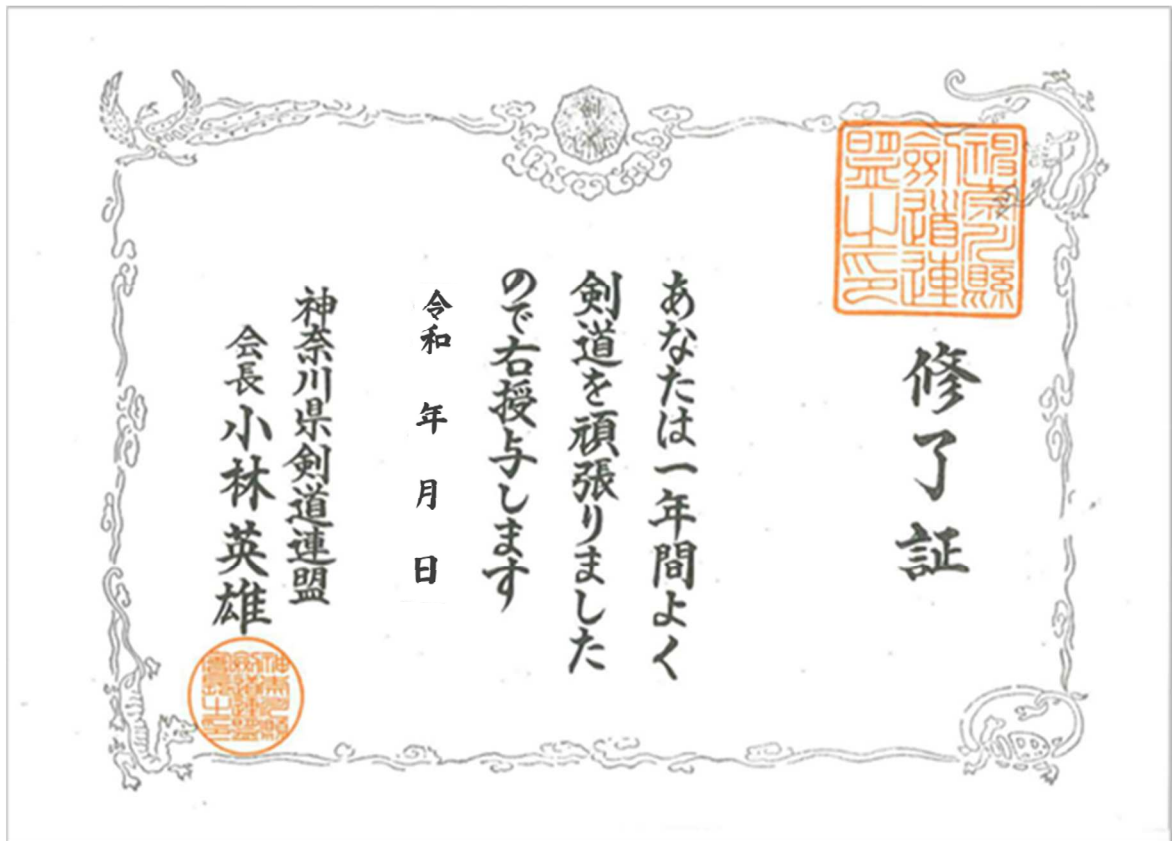 修了証
神奈川縣
劍道連
盟之印
あなたは一年間よく
剣道を頑張りました
ので右授与します
令和 年 月 日
神奈川県剣道連盟
会長 小林英雄